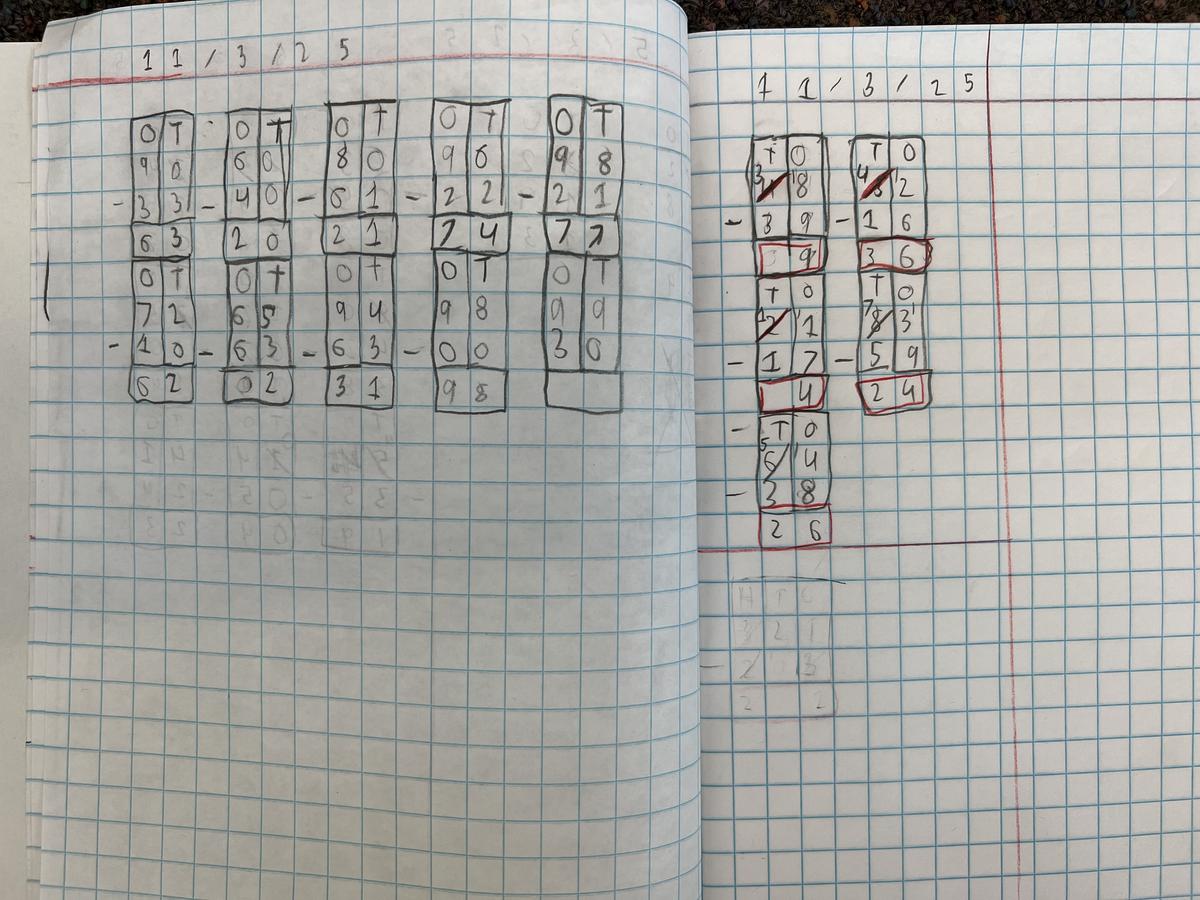 11/3/25
O T O T O T O T O T
9 6 6 0 8 0 9 6 9 8
- 3 3 - 4 0 - 6 1 - 2 2 - 2 1
6 3 2 0 2 1 7 4 7 7
O T O T O T O T O T
7 2 6 5 9 4 9 8 9 9
- 1 0 - 6 3 - 6 3 - 0 0 3 0
6 2 0 2 3 1 9 8
11/3/25
T O T O
3 1 8 4 1 2
- 3 9 - 1 6
9 3 6
T O T O
1 2 1 1 7 8 1 3
- 1 7 - 5 9
4 2 4
- T O
5 6 4
- 3 8
2 6
H T
3 2 1
- 2 3
2 2